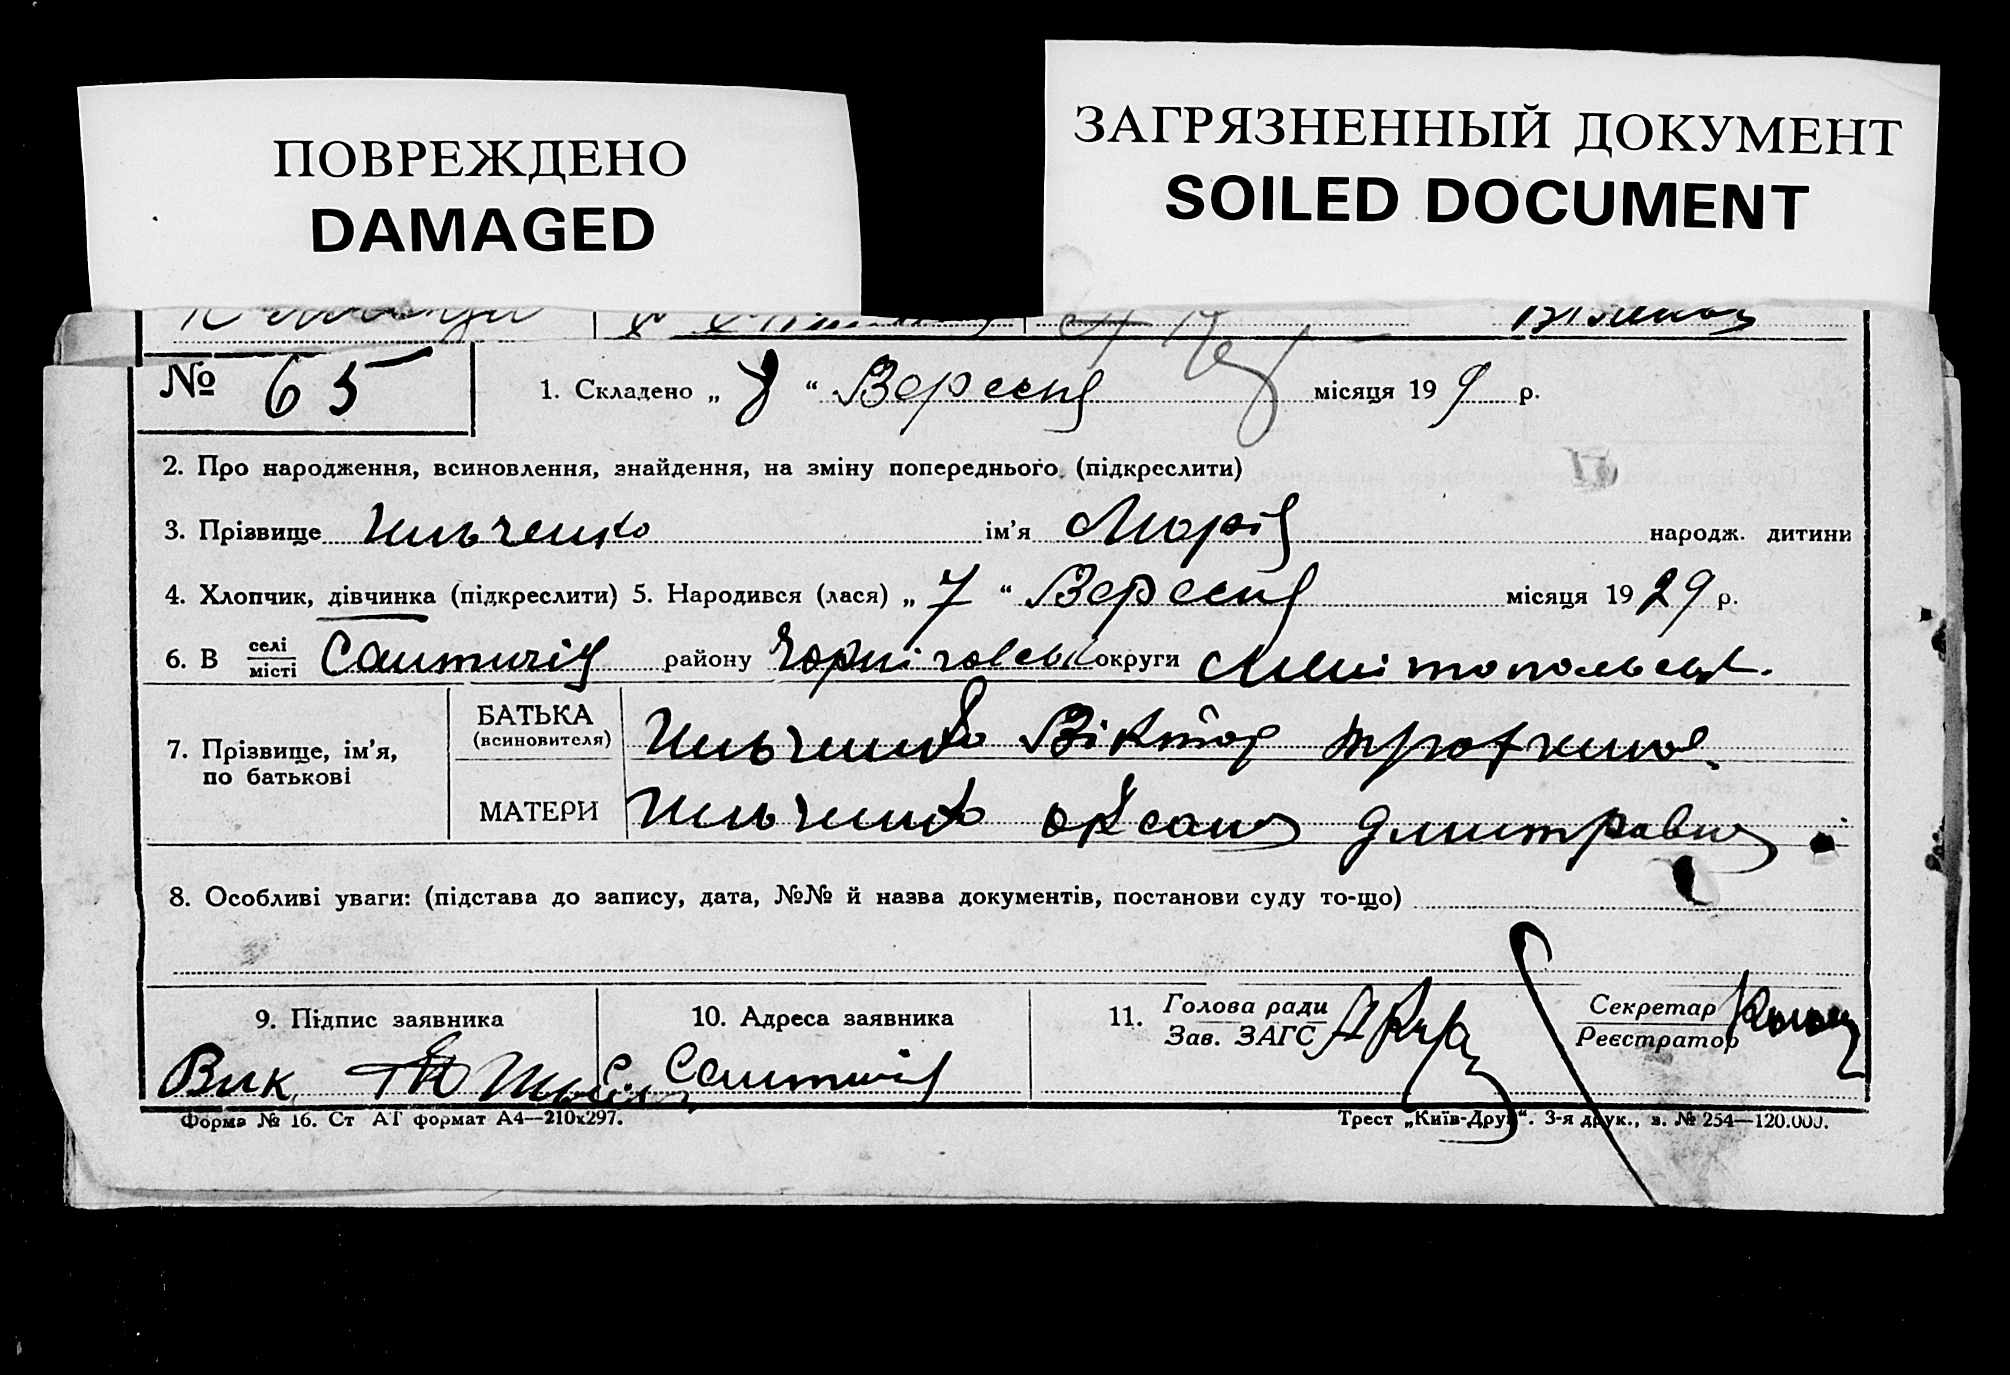 ПОВРЕЖДЕНО
DAMAGED
ЗАГРЯЗНЕННЫЙ ДОКУМЕНТ
SOILED DOCUMENT
№ 65
1. Складено „ 8 “ Вересня місяця 19 9 р.
2. Про народження, всиновлення, знайдення, на зміну попереднього (підкреслити)
3. Прізвище Ильченко ім’я Марія народж. дитини
4. Хлопчик, дівчинка (підкреслити) 5. Народився (лася) „ 7 “ Вересня місяця 19 29 р.
6. В селі / місті району округи
7. Прізвище, ім’я, по батькові
БАТЬКА (всиновителя) Ильченко Віктор
МАТЕРИ Ильченко Оксана Дмитравна
8. Особливі уваги: (підстава до запису, дата, №№ й назва документів, постанови суду то-що)
9. Підпис заявника
10. Адреса заявника
11. Голова ради / Зав. ЗАГС
Секретар / Реєстратор
Форма № 16. Ст АТ формат А4—210х297.
Трест „Київ-Друк“. 3-я друк., з. № 254—120.000.